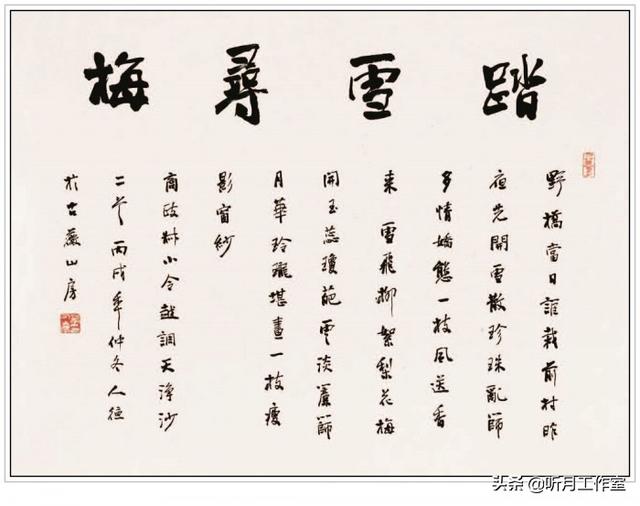 踏雪尋梅
野橋當日誰栽前村昨
夜先開雪散珍珠亂篩
多情嬌態一枝風送香
来 雪飛柳絮梨花梅
開玉蕊瓊葩雲淡簾篩
月華玲瓏堪畫一枝瘦
影窗紗
商政叔小令越調天淨沙
二首 丙戌年仲冬人
於古山房
头条 @听月工作室